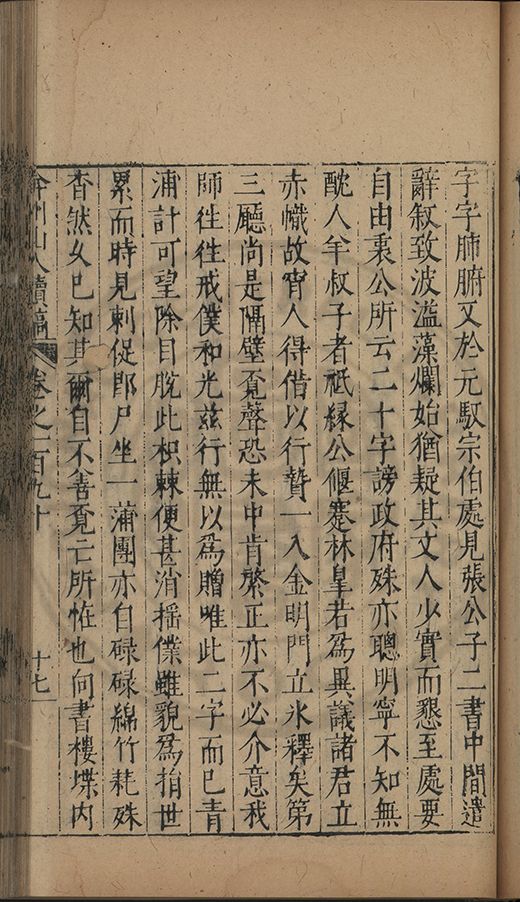 字字肺腑又於元馭宗伯處見張公子二書中間遣
辭敘致波溢藻爛始猶疑其文人少實而懇至處要
自由裏公所云二十字謗政府殊亦聰明寧不知無
酖人羊叔子者祗緣公偃蹇林皇若爲異議諸君立
赤幟故宵人得借以行贄一入金明門立氷釋矣第
三廳尚是隔壁覔聲恐未中肯綮正亦不必介意我
師徃徃戒僕和光兹行無以爲贈唯此二字而巳青
浦計可望除目脫此枳棘便甚消揺僕雖貌爲捐世
累而時見刺促即尸坐一蒲團亦自碌碌綿竹耗殊
杳然久巳知其爾自不善覔亡所恠也向書樓堞内
弇州山人續稿 卷之一百九十 十七